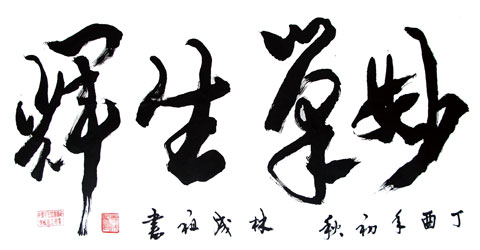 妙笔生辉
丁酉年初秋 林成祖書